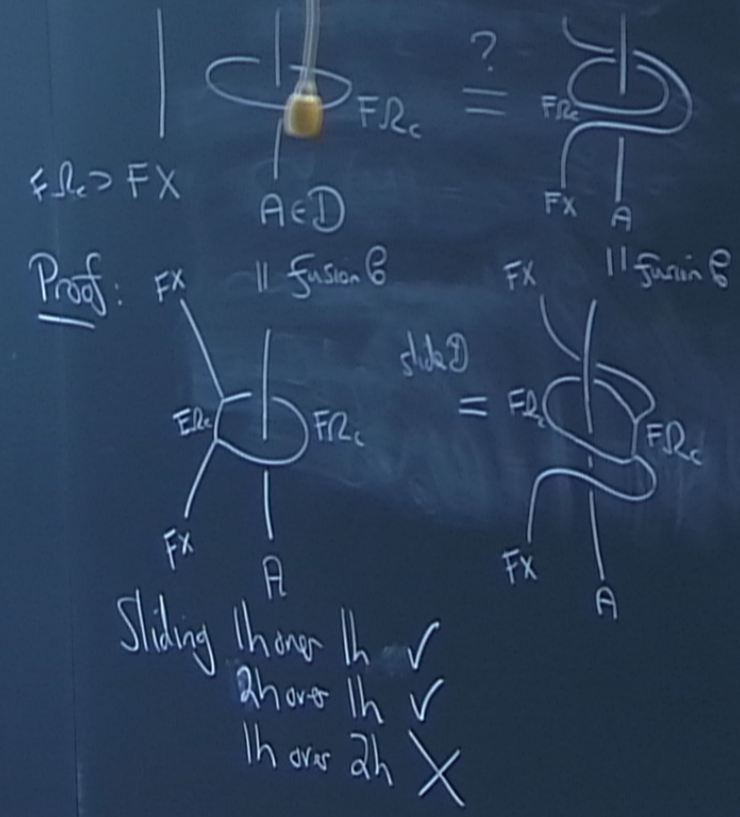 ?
FΩc = FΩc
FΩc > FX A∈D FX A
Proof: FX || fusion C FX || fusion C
slide D
FΩc FΩc = FΩc FΩc
FX A FX A
Sliding 1h over 1h ✓
2h over 1h ✓
1h over 2h X